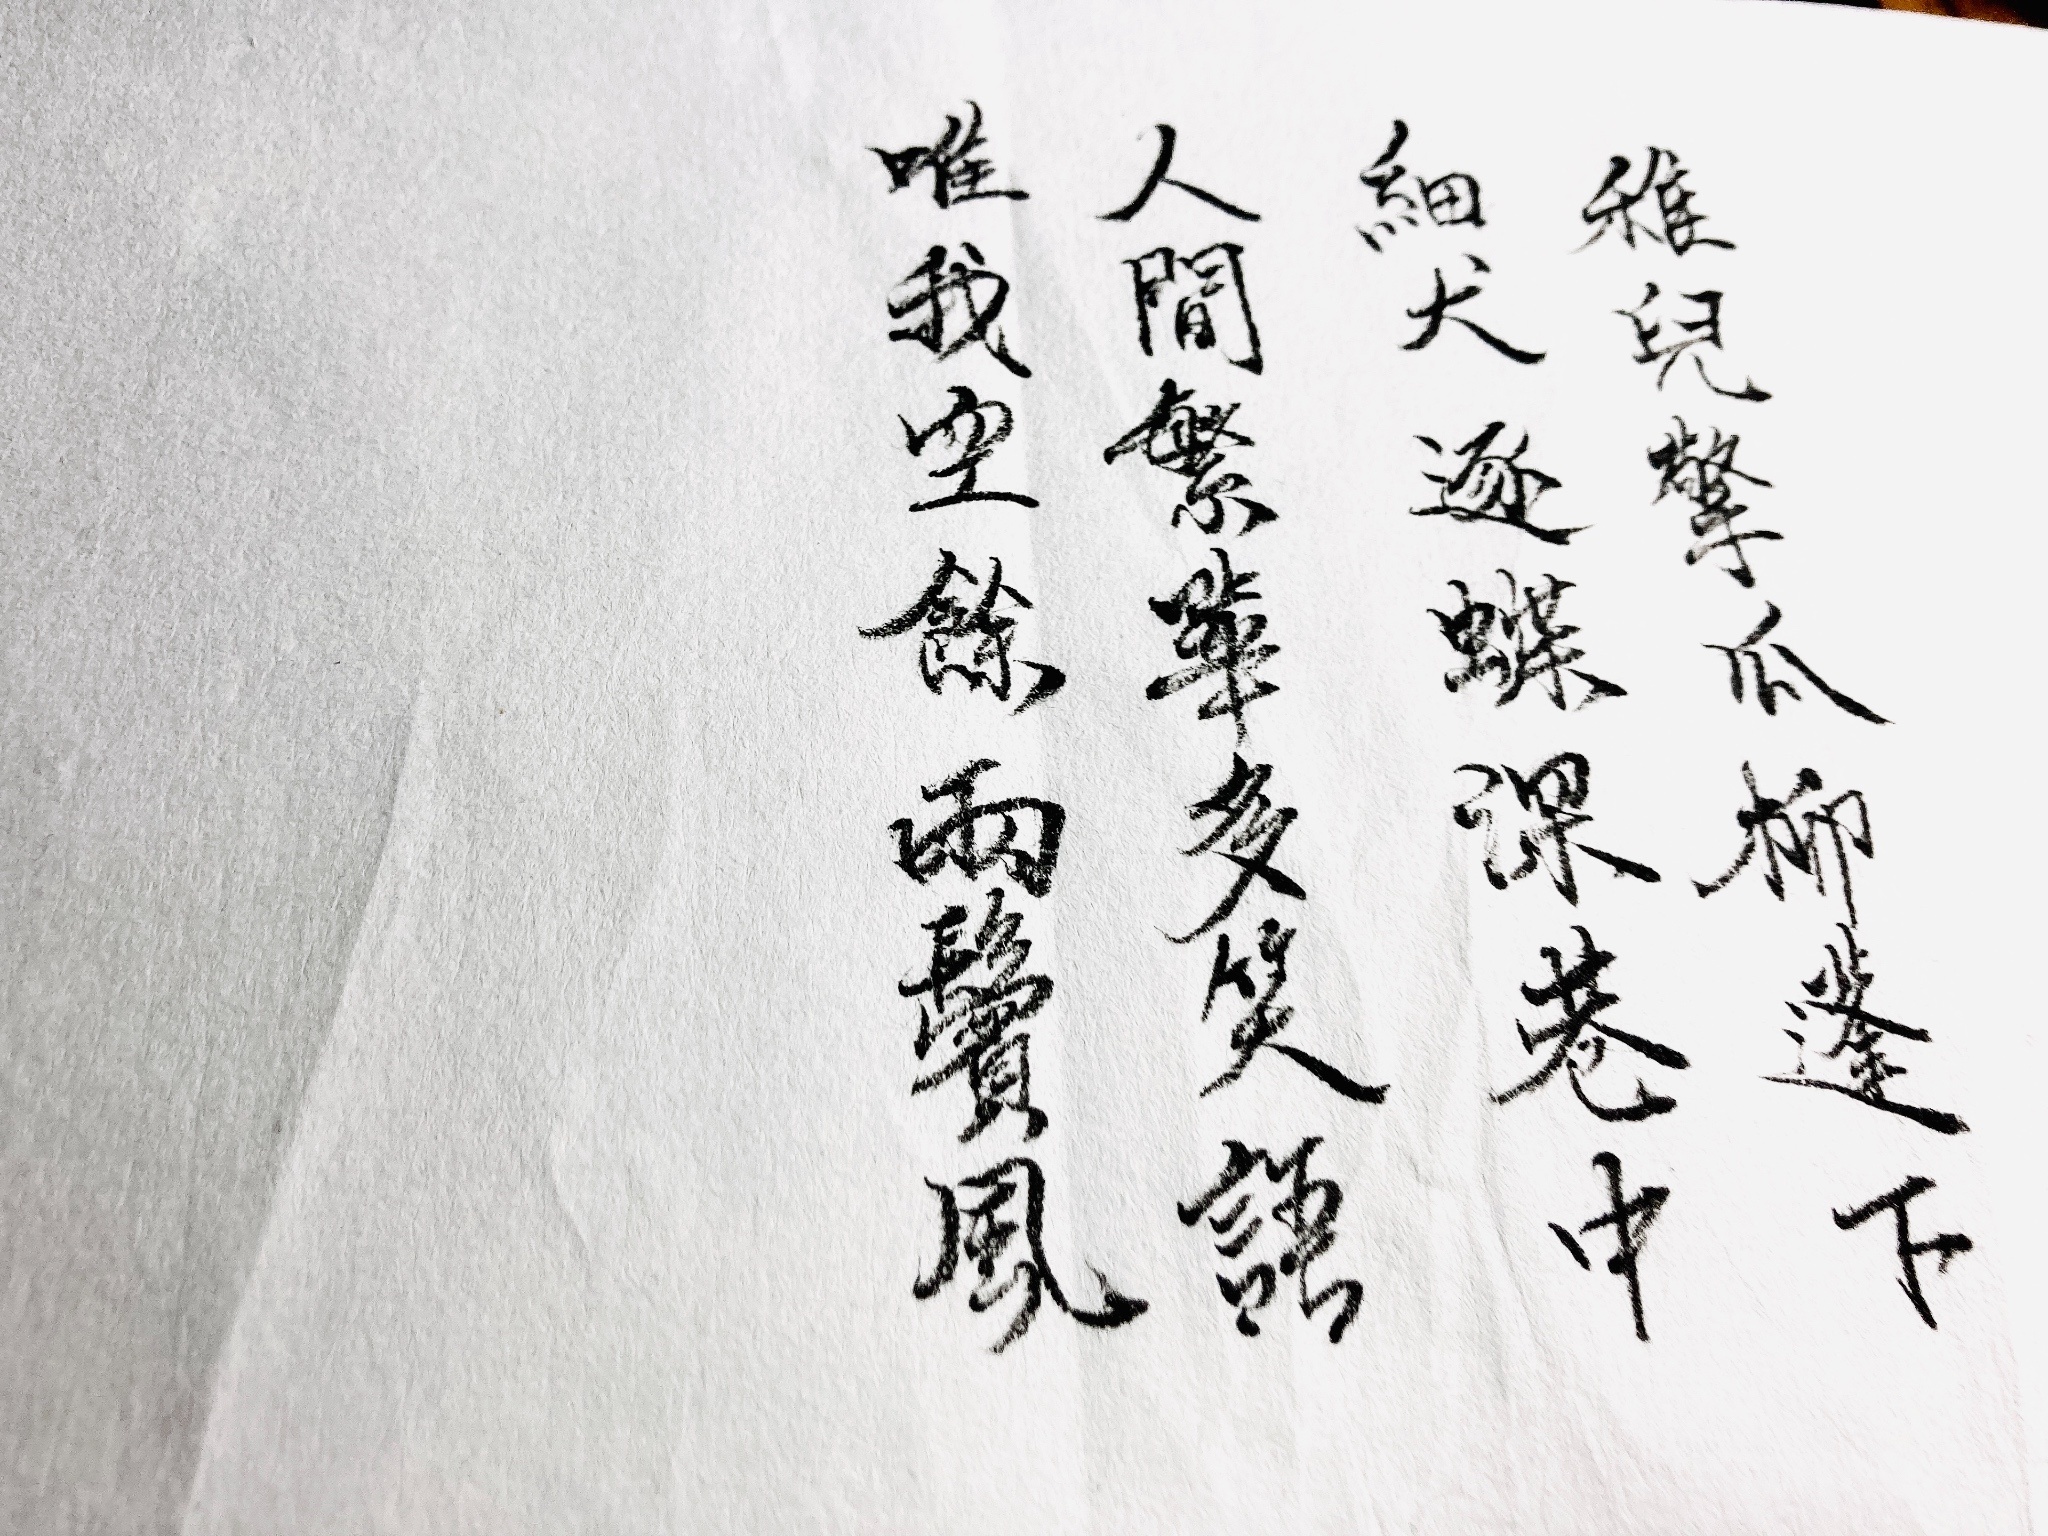 稚兒擎瓜柳蓬下
細犬逐蝶深巷中
人間繁華多笑語
唯我空餘兩鬢風